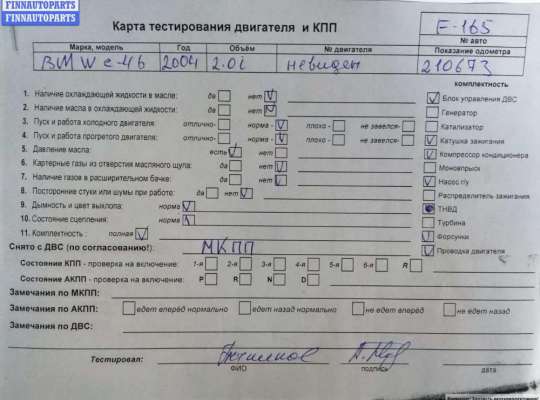 FINNAUTOPARTS
FINNAUTOPARTS
FINNAUTOPARTS
Карта тестирования двигателя и КПП
E-165
№ авто
Марка, модель Год Объём № двигателя Показание одометра
BMW e-46 2004 2.0i невиден 210673
комплектность
1. Наличие охлаждающей жидкости в масле: да нет
Блок управления ДВС
2. Наличие масла в охлаждающей жидкости: да нет
Генератор
3. Пуск и работа холодного двигателя: отлично- норма - плохо - не завелся-
Катализатор
4. Пуск и работа прогретого двигателя: отлично- норма - плохо - не завелся-
Катушка зажигания
5. Давление масла: есть нет
Компрессор кондиционера
6. Картерные газы из отверстия масляного щупа: да нет
Моновпрыск
7. Наличие газов в расширительном бачке: да нет
Насос гу
8. Посторонние стуки или шумы при работе: да нет
Распределитель зажигания
9. Дымность и цвет выхлопа: норма
ТНВД
10. Состояние сцепления: норма
Турбина
11. Комплектность : полная
Форсунки
Снято с ДВС (по согласованию!): МКПП
Проводка двигателя
Состояние КПП - проверка на включение: 1-я 2-я 3-я 4-я 5-я 6-я R
Состояние АКПП - проверка на включение: P R N D
Замечания по МКПП:
Замечания по АКПП: едет вперёд нормально едет назад нормально не едет вперёд не едет назад
Замечания по ДВС:
Тестировал:
ФИО подпись дата